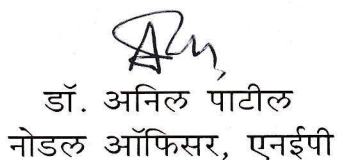 डॉ. अनिल पाटील
नोडल ऑफिसर, एनईपी